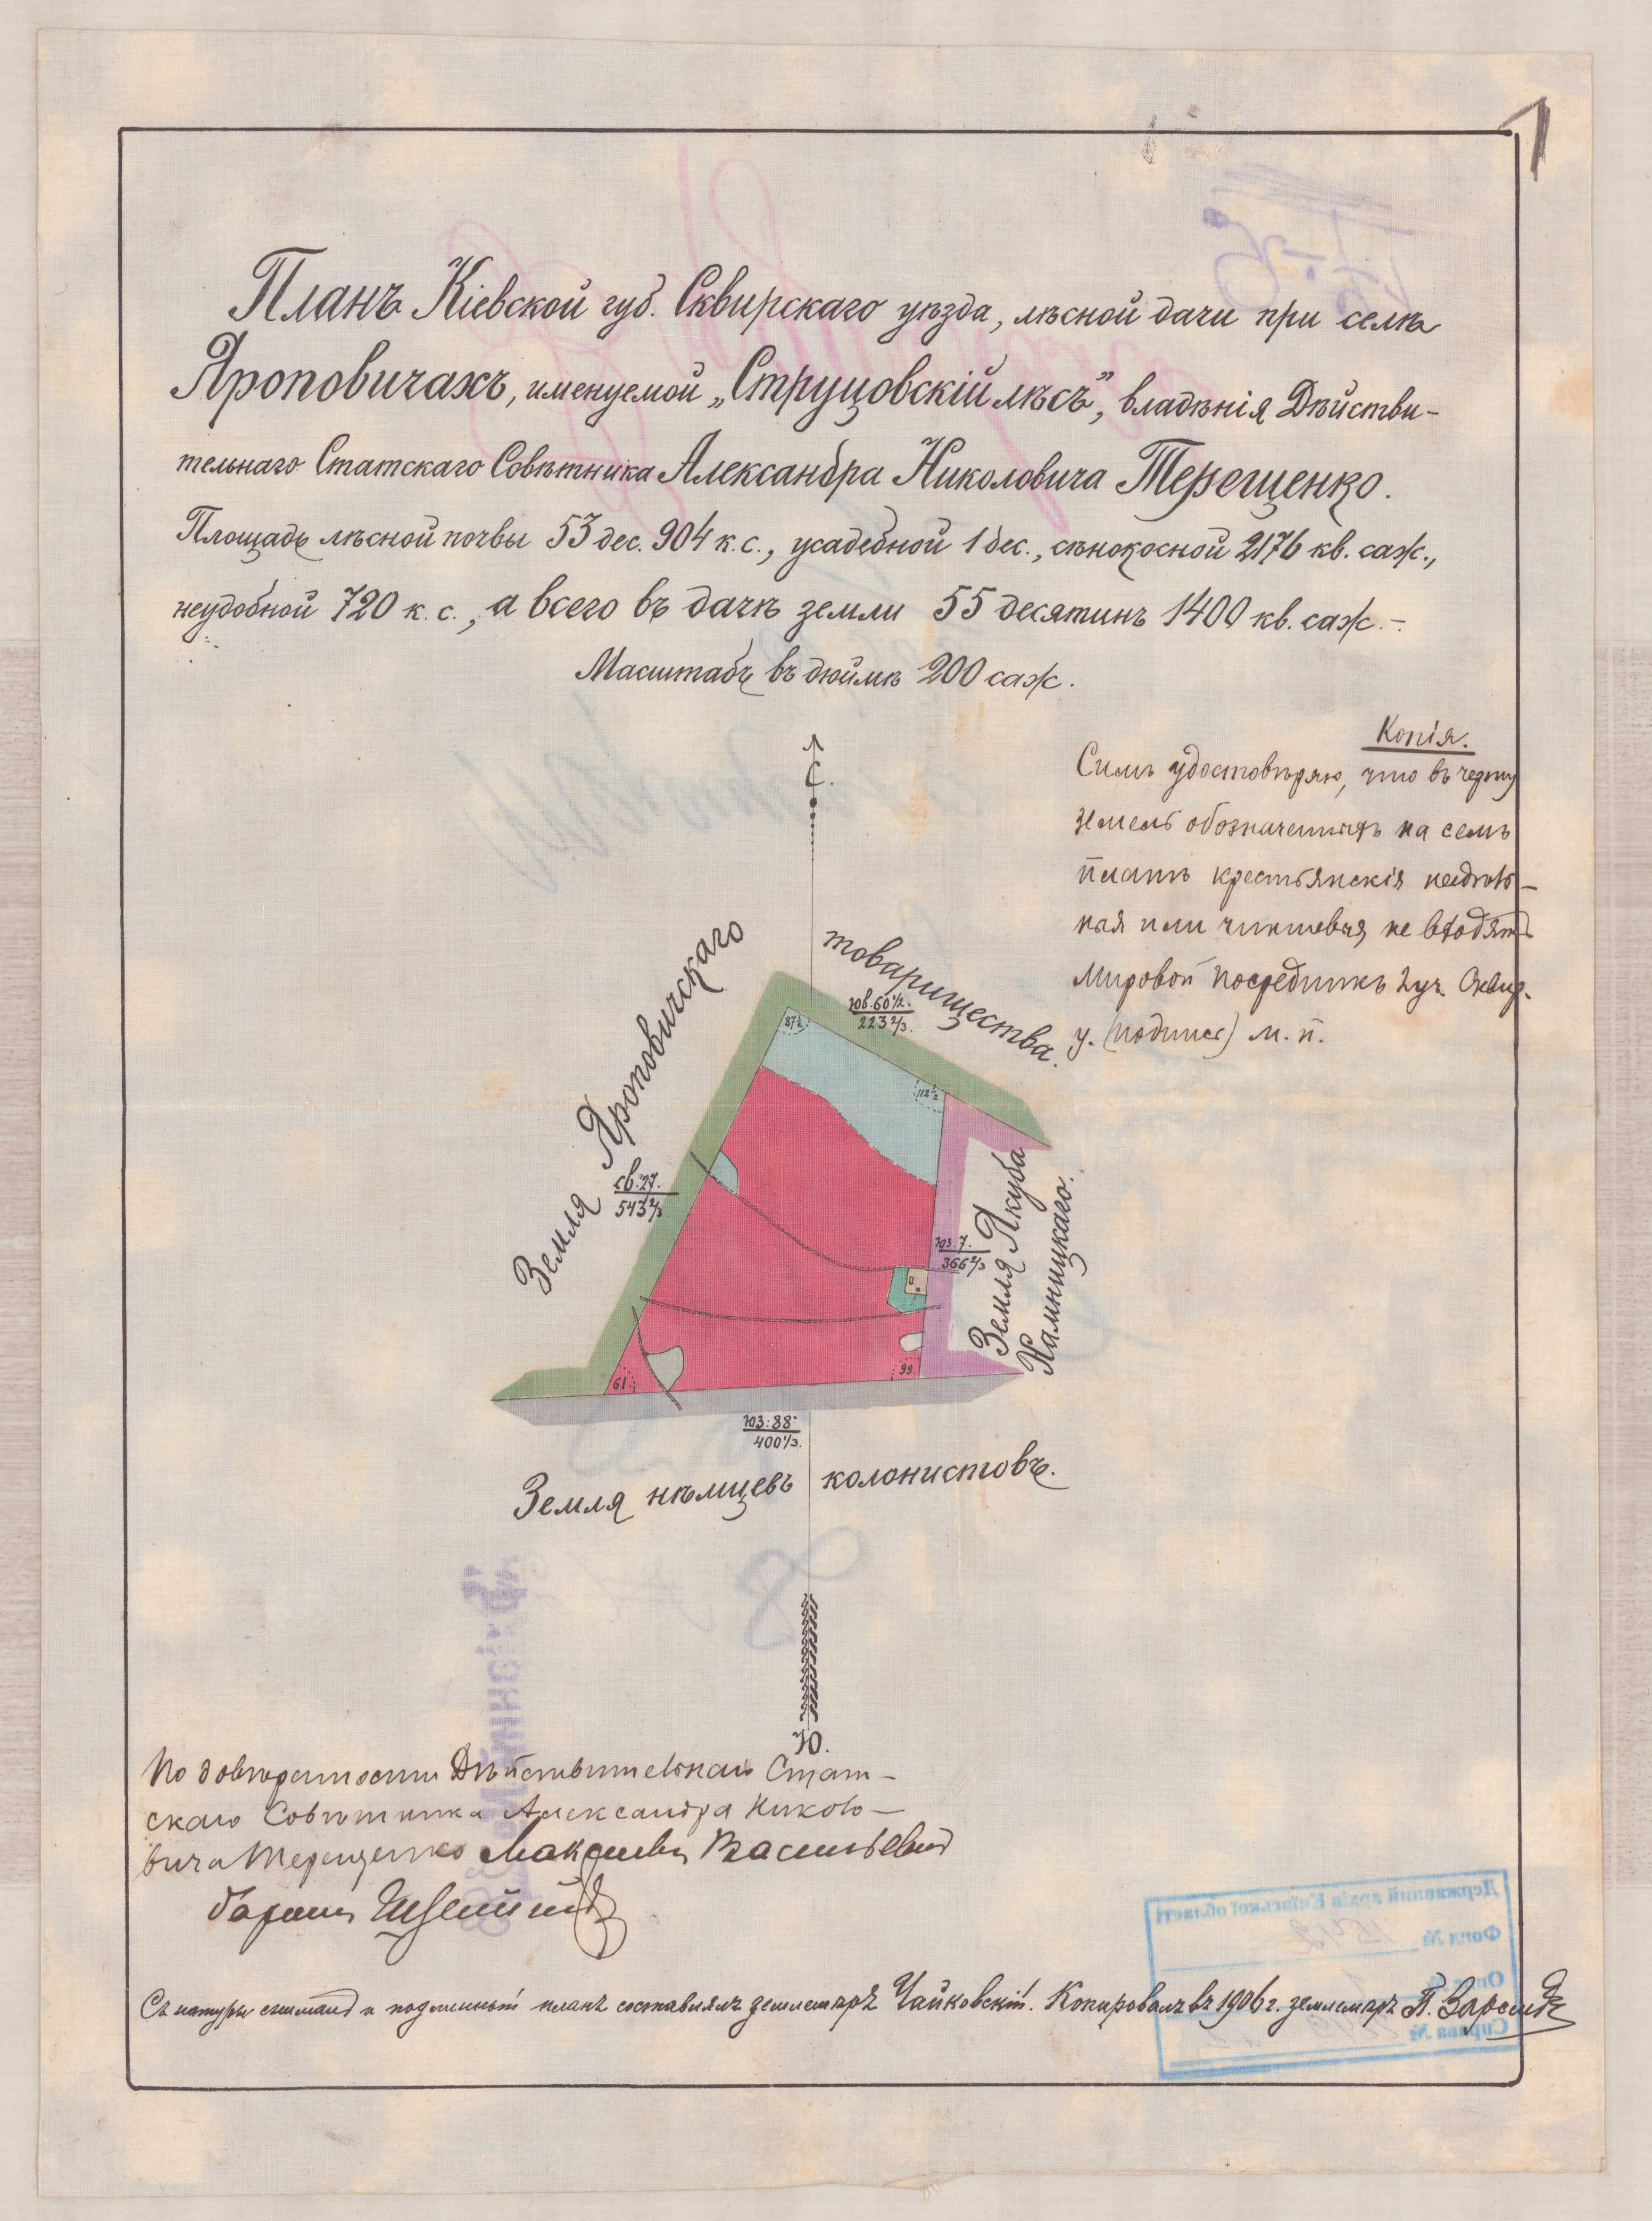 1
Планъ Кіевской губ. Сквирскаго уѣзда, лѣсной дачи при селѣ
Яроповичахъ, именуемой „Струцовскій лѣсъ”, владѣнія Дѣйстви-
тельнаго Статскаго Совѣтника Александра Николовича Терещенко.
Площадь лѣсной почвы 53 дес. 904 к. с., усадебной 1 дес., сѣнокосной 2176 кв. саж.,
неудобной 720 к. с., а всего въ дачѣ земли 55 десятинъ 1400 кв. саж.-
Масштабъ въ дюймѣ 200 саж.
Копія.
Симъ удостовѣряю, что въ черту
земель обозначенныхъ на семъ
планѣ крестьянскія надѣль-
ныя или чиншевыя не входятъ
Мировой Посредникъ 2 уч. Сквир.
у. (подпись) м. п.
С.
Земля Яроповичскаго
товарищества.
ЮВ. 60½.
223⅔.
87½
112½
СВ: 27.
543⅔
ЮЗ: 7.
366⅔
Земля Якуба
Камницкаго.
61.
99.
ЮЗ: 88
400⅓.
Земля нѣмцевъ колонистовъ.
Ю.
По довѣренности Дѣйствительнаго Стат-
скаго Совѣтника Александра Николо-
вича Терещенко Максимъ Васильевичъ
баронъ
Съ натуры снималъ и подлинный планъ составлялъ землемѣръ Чайковскій. Копировалъ въ 1906 г. землемѣръ П.
Державний архів Київської області
Фонд №
Опис №
Справа №